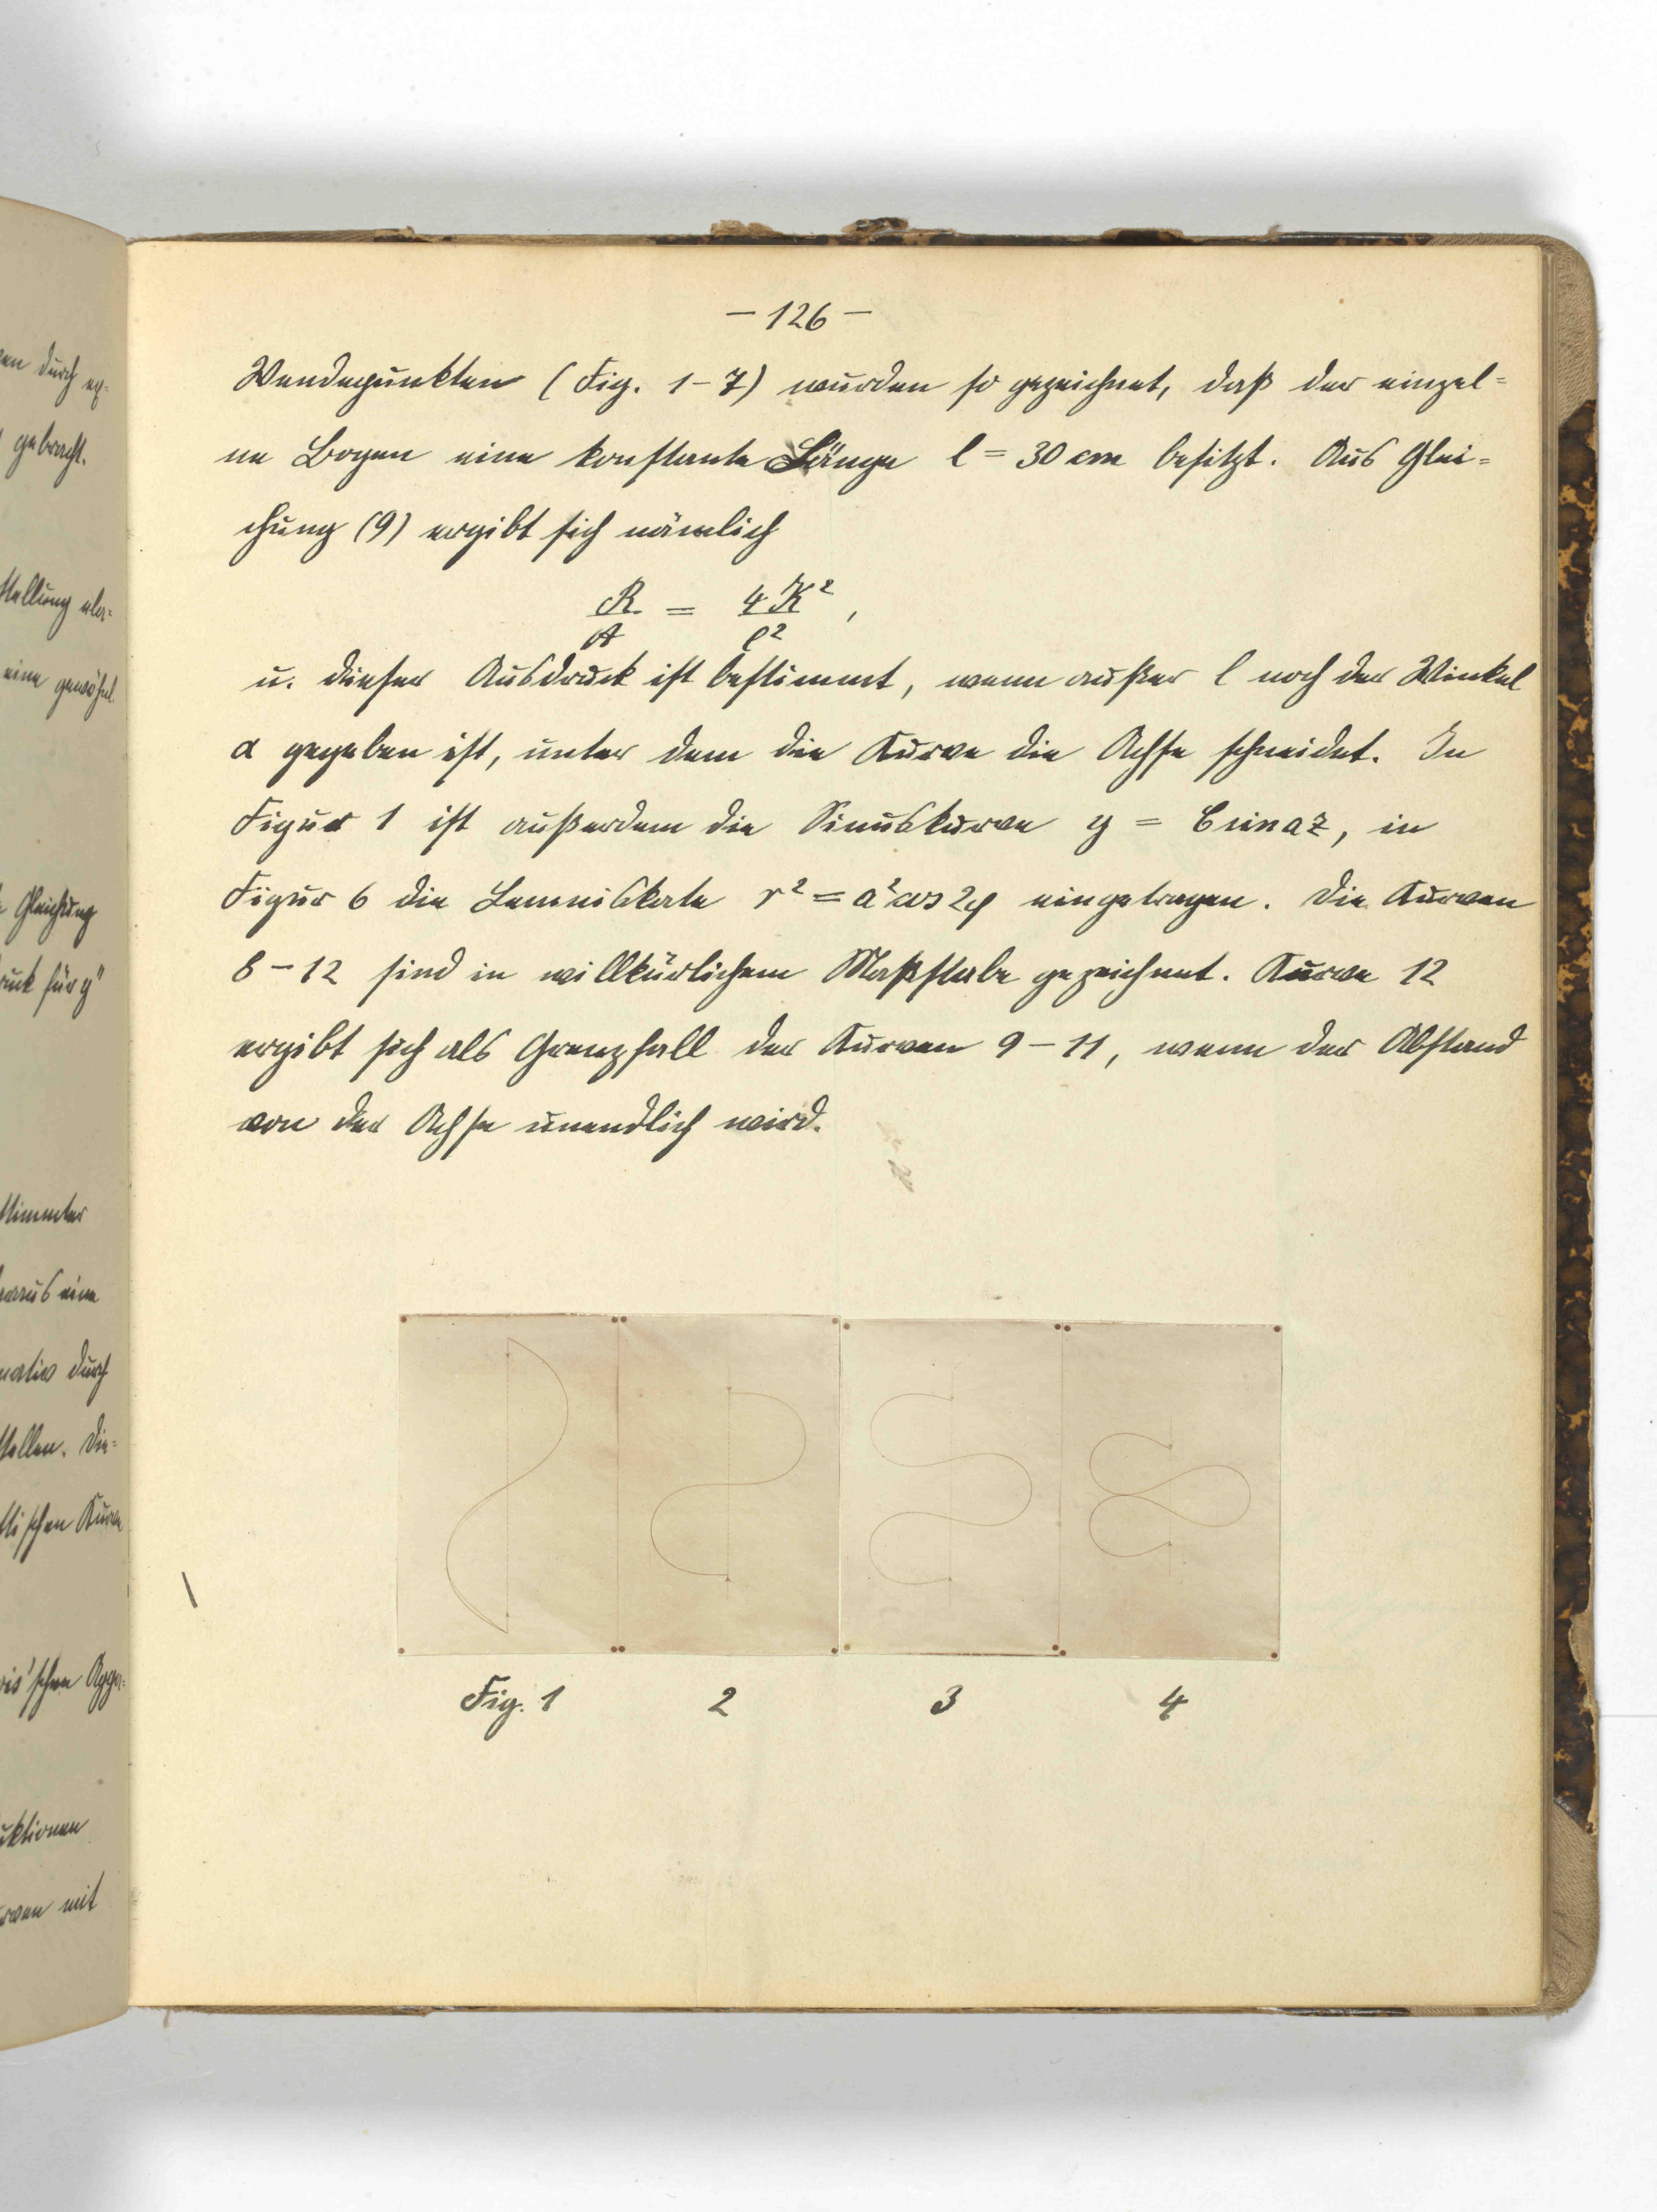 — 126 —
Wendepunkten (Fig. 1–7) wurden so gezeichnet, daß der einzel=
ne Bogen eine konstante Länge l = 30 cm besitzt. Aus Glei=
chung (9) ergibt sich nämlich
R/A = 4K²/l² ,
u. dieser Ausdruck ist bestimmt, wenn außer l noch der Winkel
α gegeben ist, unter dem die Kurve die Achse schneidet. In
Figur 1 ist außerdem die Sinuskurve y = b sin az, in
Figur 6 die Lemniskate r² = a² cos 2φ eingetragen. Die Kurven
8–12 sind in willkürlichem Maßstabe gezeichnet. Kurve 12
ergibt sich als Grenzfall der Kurven 9–11, wenn der Abstand
von der Achse unendlich wird.
Fig. 1 2 3 4
durch
gebracht.
stellung
eine
Gleichung
für y"
stimmter
eine
durch
stellen. Die=
schen
schen
mit